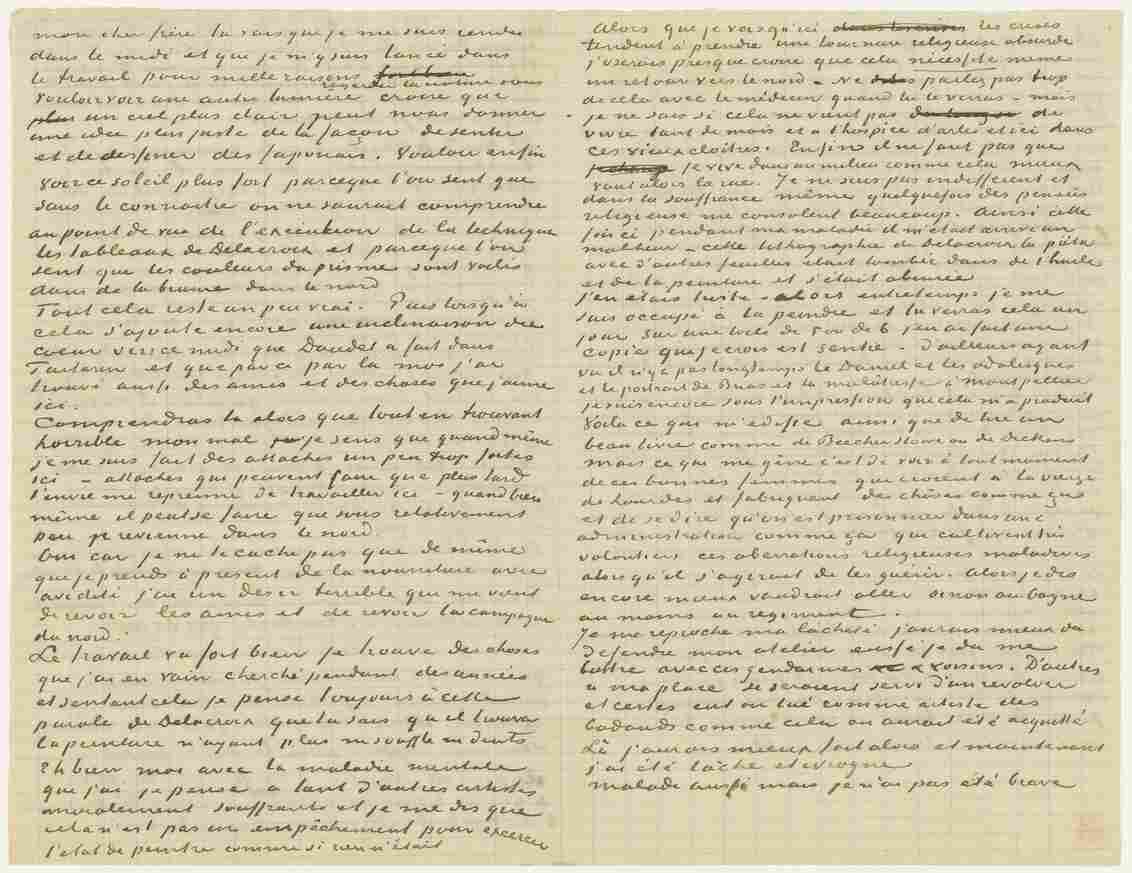 mon cher frère tu sais que je me suis rendu
dans le midi et que je m'y suis lancé dans
le travail pour mille raisons
regarder la nature sous
Vouloir voir une autre lumière croire que
un ciel plus clair peut nous donner
une idée plus juste de la façon de sentir
et de dessiner des Japonais. Vouloir enfin
voir ce soleil plus fort parceque l'on sent que
sans le connaitre on ne saurait comprendre
au point de vue de l'exécution de la technique
les tableaux de Delacroix et parceque l'on
sent que les couleurs du prisme sont voilés
dans de la brume dans le nord
Tout cela reste un peu vrai. Puis lorsqu'à
cela s'ajoute encore une inclinaison de
coeur vers ce midi que Daudet a fait dans
Tartarin et que par ci par là moi j'ai
trouvé aussi des amis et des choses que j'aime
ici.
Comprendras tu alors que tout en trouvant
horrible mon mal je sens que quand même
je me suis fait des attaches un peu trop fortes
ici – attaches qui peuvent faire que plus tard
l'envie me reprenne de travailler ici – quand bien
même il peut se faire que sous relativement
peu je revienne dans le nord.
Oui car je ne te cache pas que de même
que je prends à présent de la nourriture avec
avidité j'ai un désir terrible qui me vient
de revoir les amis et de revoir la campagne
du nord.
Le travail va fort bien je trouve des choses
que j'ai en vain cherché pendant des années
et sentant cela je pense toujours à cette
parole de Delacroix que tu sais qu'il trouva
la peinture n'ayant plus ni souffle ni dents
Eh bien moi avec la maladie mentale
que j'ai je pense a tant d'autres artistes
moralement souffrants et je me dis que
cela n'est pas un empêchement pour exercer
l'état de peintre comme si rien n'était
Alors que je vois qu'ici les crises
tendent à prendre une tournure religieuse absurde
j'oserais presque croire que cela nécessite même
un retour vers le nord – Ne parlez pas trop
de cela avec le médecin quand tu le verras – mais
je ne sais si cela ne vient pas de
vivre tant de mois et a l'hospice d'Arles et ici dans
ces vieux cloîtres. Enfin il ne faut pas que
je vive dans un milieu comme cela mieux
vaut alors la rue. Je ne suis pas indifférent et
dans la souffrance même quelquefois des pensées
religieuse me consolent beaucoup. Ainsi cette
fois ci pendant ma maladie il m'était arrivé un
malheur – cette lithographie de Delacroix la pieta
avec d'autres feuilles était tombée dans de l'huile
et de la peinture et s'était abimée
j'en étais triste – alors entretemps je me
suis occupé à la peindre et tu verras cela un
jour sur une toile de 5 ou de 6 j'en ai fait une
copie que je crois est sentie – D'ailleurs ayant
vu il n'y a pas longtemps le Daniel et les odalisques
et le portrait de Brias et la mulâtresse à Montpellier
je suis encore sous l'impression que cela m'a produit
Voilà ce qui m'édifie ainsi que de lire un
beau livre comme de Beecher Stowe ou de Dickens
mais ce qui me gêne c'est de voir à tout moment
de ces bonnes femmes qui croient a la vierge
de Lourdes et fabriquent des choses comme ça
et de se dire qu'on est prisonnier dans une
administration comme ça qui cultivent très
volontiers ces aberrations religieuses maladives
alors qu'il s'agirait de les guérir. Alors je dis
encore mieux vaudrait aller sinon au bagne
au moins au régiment.
Je me reproche ma lâcheté j'aurais mieux dû
défendre mon atelier eussé-je dû me
battre avec ces gendarmes & voisins. D'autres
à ma place se seraient servi d'un revolver
et certes eut on tué comme artiste des
badauds comme cela on aurait été acquitté
Là j'aurais mieux fait alors et maintenant
j'ai été lâche et ivrogne
malade aussi mais je n'ai pas été brave